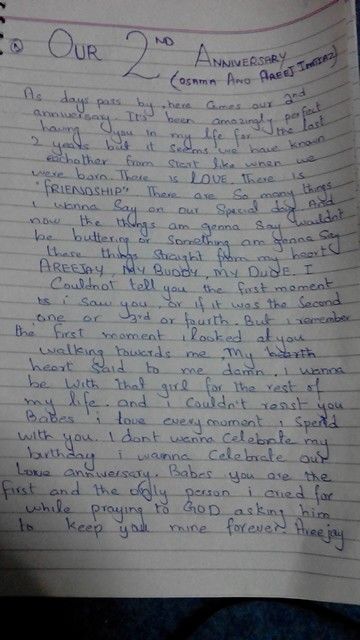 OUR 2ND ANNIVERSARY
(OSAMA AND AREEJ IMTIAZ)
As days pass by, here comes our 2nd
anniversary. It's been amazingly perfect
having you in my life for the last
2 years but it seems we have known
eachother from start like when we
were born. There is LOVE. There is
"FRIENDSHIP" There are So many things
i wanna Say on our Special day. And
now the things am gonna say wouldnt
be buttering or Something am gonna Say
these things straight from my heart
AREEJAY, MY BUDDY, MY DUDE. I
Couldnot tell you the first moment
is i saw you. or if it was the Second
one or 3rd or fourth. But i remember
the first moment i looked at you
walking towards me. My
heart Said to me damn. i wanna
be with that girl for the rest of
my life. and i Couldn't resist you
Babes i love every moment i spend
with you. I dont wanna Celebrate my
birthday i wanna Celebrate our
Love anniversary. Babes you are the
first and the only person i cried for
while praying to GOD asking him
to keep you mine forever. Areejay